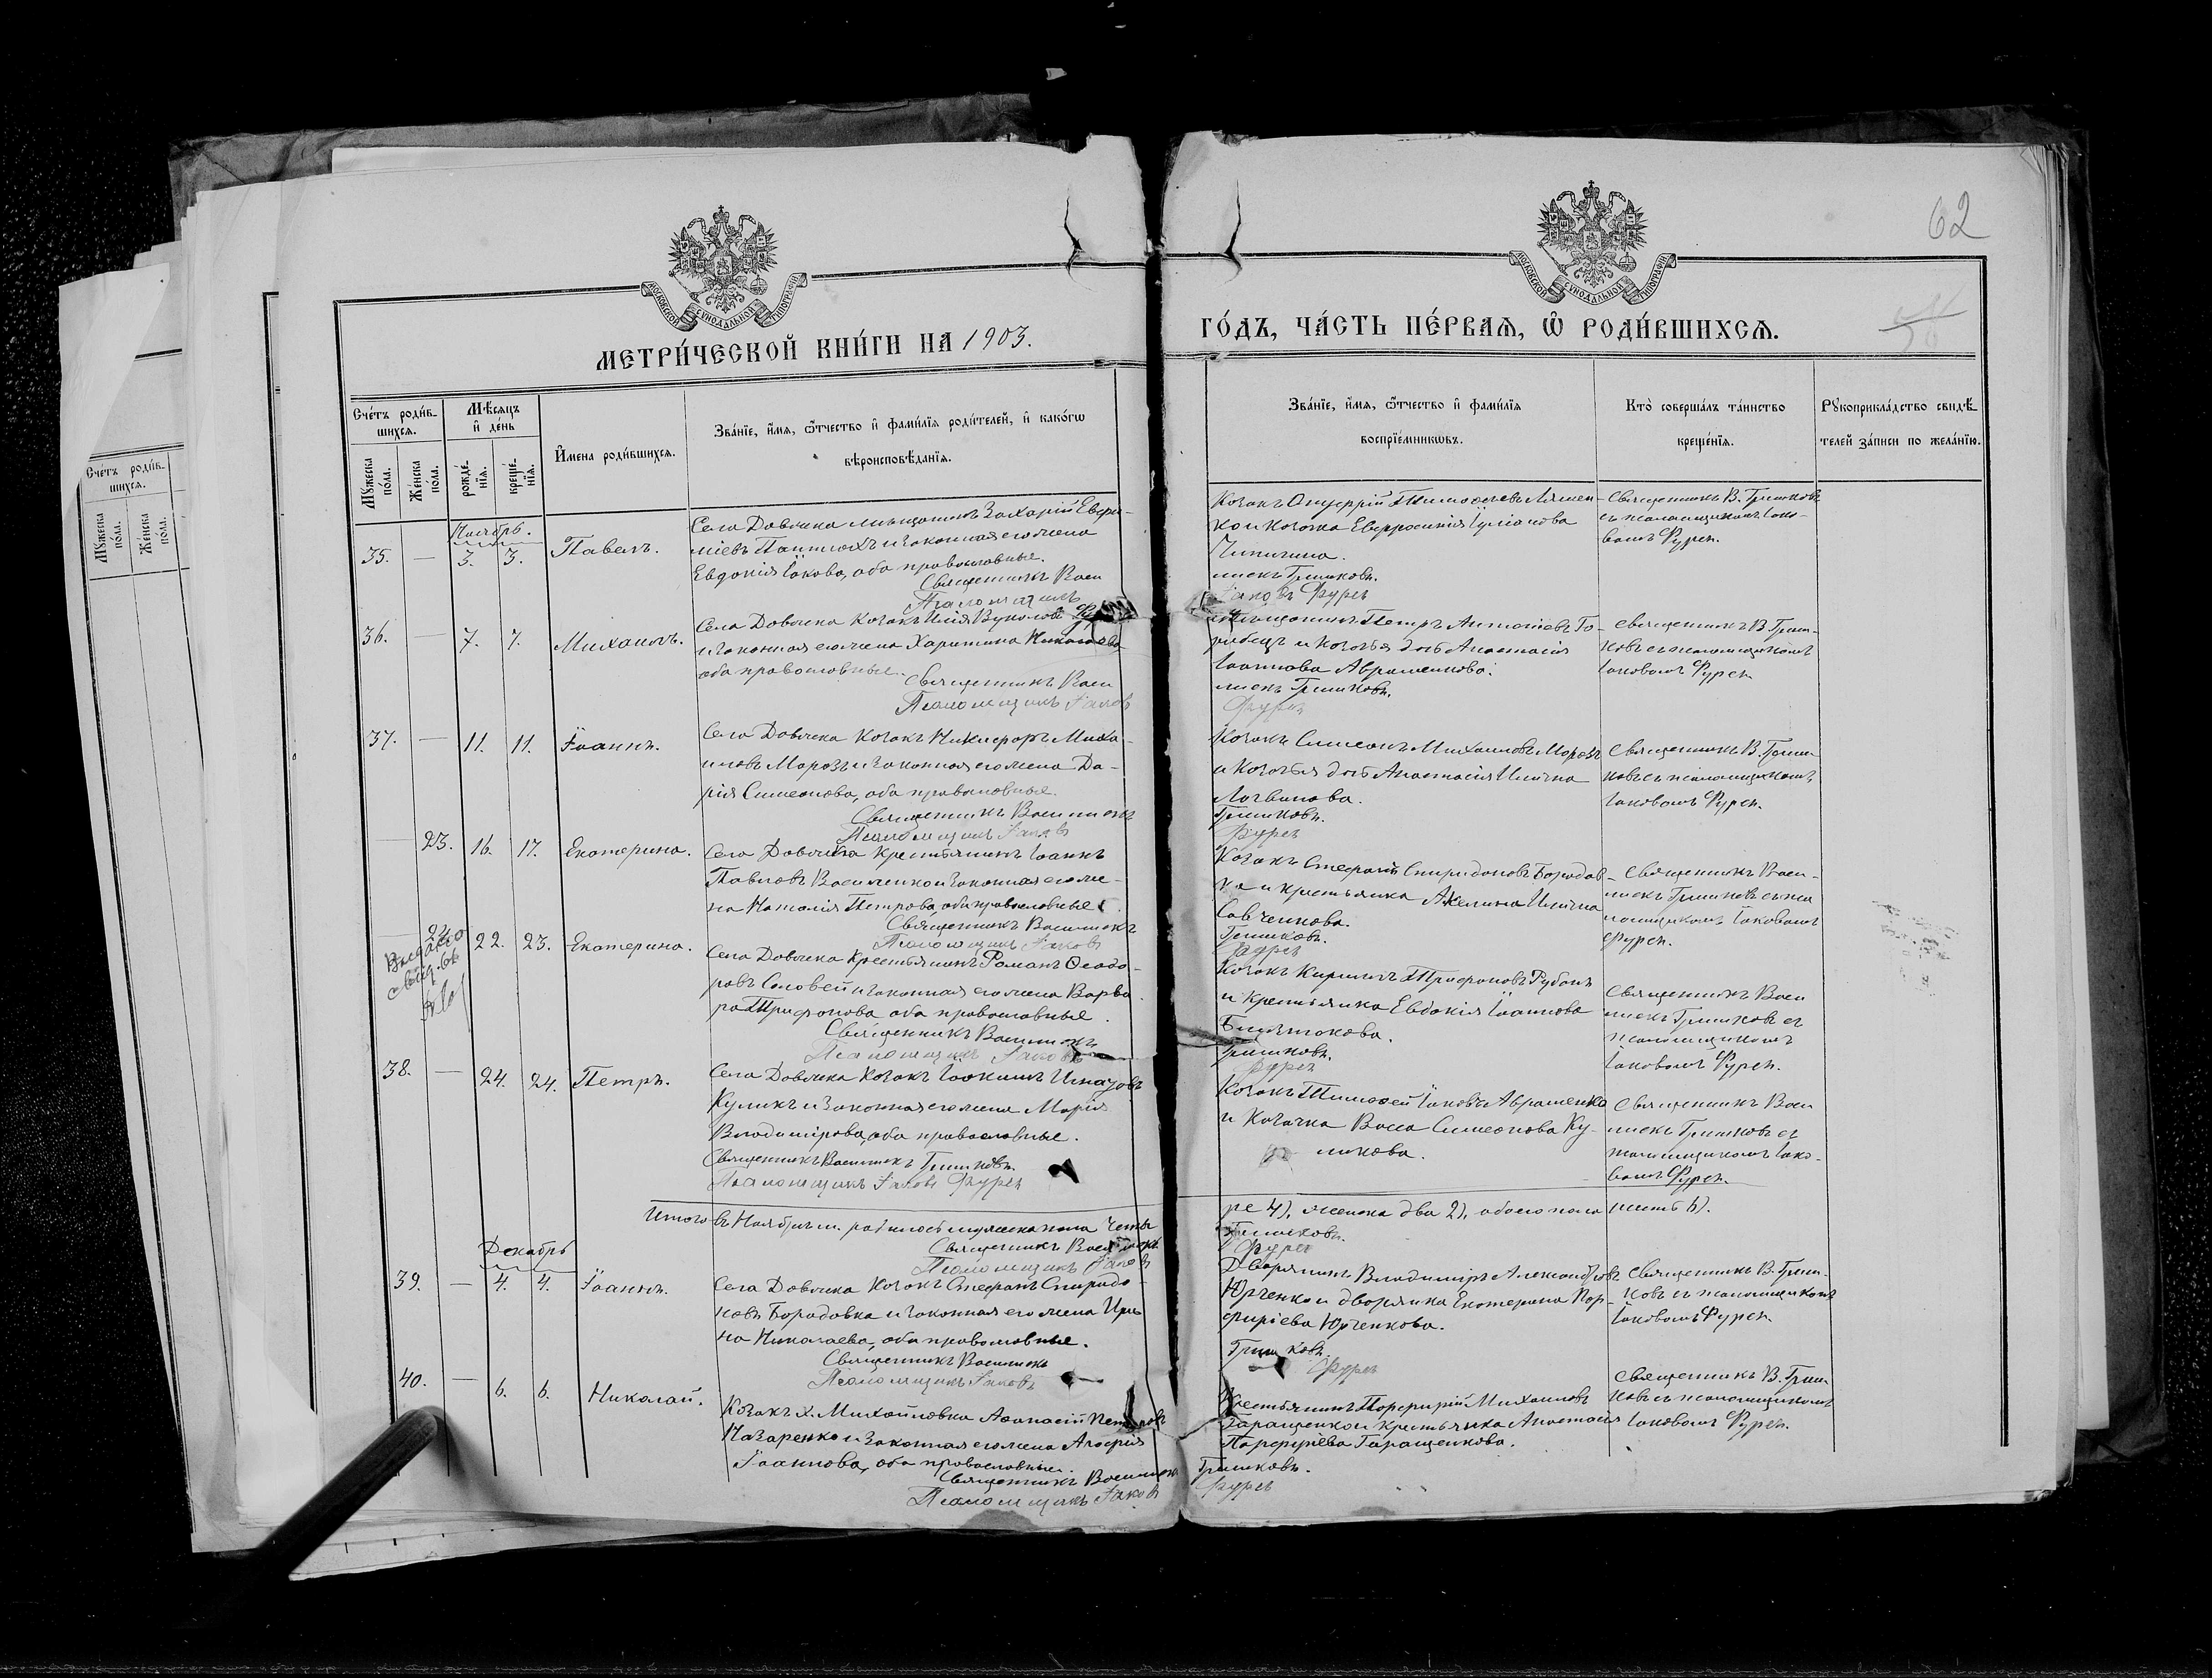 62
МОСКОВСКОЙ СѴНОДАЛЬНОЙ ТИПОГРАФІИ
МОСКОВСКОЙ СѴНОДАЛЬНОЙ ТИПОГРАФІИ
МЕТРИ́ЧЕСКОЙ КНИ́ГИ НА 1903.
ГО́ДЪ, ЧА́СТЬ ПЕ́РВАѦ, Ѡ҆ РОДИ́ВШИХСѦ.
Сче́тъ роди́в-
шихсѧ.
Мꙋ́жеска
по́ла.
Же́нска
по́ла.
Мѣ́сѧцъ
и҆ де́нь
рожде́-
нїѧ.
креще́-
нїѧ.
И҆мена роди́вшихсѧ.
Зва́нїе, и҆́мѧ, ѻ҆́тчество и҆ фами́лїѧ роди́телей, и҆ како́гѡ
вѣроисповѣ́данїѧ.
Зва́нїе, и҆́мѧ, ѻ҆́тчество и҆ фами́лїѧ
воспрїе́мникѡвъ.
Кто̀ соверша́лъ та́инство
креще́нїѧ.
Рꙋкоприкла́дство свидѣ́-
телей за́писи по жела́нїю.
Сче́тъ роди́в-
шихсѧ.
Мꙋ́жеска
по́ла.
Же́нска
по́ла.
Ноябрь.
35. — 3. 3. Павелъ.
Села Довжика мѣщанинъ Захарій Евфи-
міевъ и законная его жена
Евдокія Іакова, оба православные.
Священникъ Васи
Псаломщикъ
Козакъ Онуфрій Тимофеевъ
ко и козачка Евфросинія
лискъ Гришковъ.
Іаковъ Фурсъ
Священникъ В. Гришковъ
съ псаломщикомъ Іако-
вомъ Фурсъ.
36. — 7. 7. Михаилъ.
Села Довжика козакъ Илія
и законная его жена Харитина Николаева
оба православные.
Священникъ Васи
Псаломщикъ Іаковъ
Мѣщанинъ Петръ Антоніевъ Го-
робецъ и козачья дочь Анастасія
Іоаннова Аврашенкова.
лискъ Гришковъ.
Фурсъ
Священникъ В. Гриш-
ковъ съ псаломщикомъ
Іаковомъ Фурсъ.
37. — 11. 11. Іоаннъ.
Села Довжика козакъ Никифоръ Миха-
иловъ Морозъ и законная его жена Да-
рія Симеонова, оба православные.
Священникъ Василискъ
Псаломщикъ Іаковъ
Козакъ Симеонъ Михаиловъ Морозъ
и козачья дочь Анастасія Илична
Логвинова.
Гришковъ.
Фурсъ
Священникъ В. Гриш-
ковъ съ псаломщикомъ
Іаковомъ Фурсъ.
— 23. 16. 17. Екатерина.
Села Довжика крестьянинъ Іоаннъ
Павловъ Василенко и законная его же-
на Наталія Петрова, оба православные.
Священникъ Василискъ
Псаломщикъ Іаковъ
Козакъ Стефанъ Спиридоновъ Бородав-
ка и крестьянка Акелина Илична
Савченкова.
Гришковъ.
Фурсъ
Священникъ Васи-
лискъ Гришковъ съ пса
ломщикомъ Іаковомъ
Фурсъ.
— 24. 22. 23. Екатерина.
Выдано
свид-во
Села Довжика крестьянинъ Романъ Ѳеодо-
ровъ Соловей и законная его жена Варва
ра Трифонова оба православные.
Священникъ Василискъ
Псаломщикъ Іаковъ
Козакъ Кириллъ Трифоновъ Рубанъ
и крестьянка Евдокія Іоаннова
Гришковъ.
Фурсъ
Священникъ Васи
лискъ Гришковъ съ
псаломщикомъ
Іаковомъ Фурсъ.
38. — 24. 24. Петръ.
Села Довжика козакъ Іоакимъ Игнатовъ
Куликъ и законная его жена Марія
Владимірова, оба православные.
Священникъ Василискъ Гришковъ.
Псаломщикъ Іаковъ Фурсъ
Козакъ Тимоѳей Іаковъ Аврашенко
и козачка Васса Симеонова Ку-
ликова.
Священникъ Васи
лискъ Гришковъ съ
псаломщикомъ Іако-
вомъ Фурсъ.
Итого въ Ноябрѣ м. родилось мужеска пола четы
ре 4), женска два 2), обоего пола шесть 6).
Священникъ Василискъ Гришковъ.
Псаломщикъ Іаковъ Фурсъ
Декабрь
39. — 4. 4. Іоаннъ.
Села Довжика козакъ Стефанъ Спиридо-
новъ Бородавка и законная его жена Ири-
на Николаева, оба православные.
Священникъ Василискъ
Псаломщикъ Іаковъ
Дворянинъ Владиміръ Александровъ
Юрченко и дворянка Екатерина Пор-
фиріева Юрченкова.
Гришковъ.
Фурсъ
Священникъ В. Гриш-
ковъ съ псаломщикомъ
Іаковомъ Фурсъ.
40. — 6. 6. Николай.
Козакъ х. Михайловка Аѳанасій Петровъ
Назаренко и законная его жена Агафія
Іоаннова, оба православные.
Священникъ Василискъ
Псаломщикъ Іаковъ
Крестьянинъ Порфирій Михаиловъ
Геращенко и крестьянка Анастасія
Порфиріева Геращенкова.
Гришковъ.
Фурсъ
Священникъ В. Гриш
ковъ съ псаломщикомъ
Іаковомъ Фурсъ.